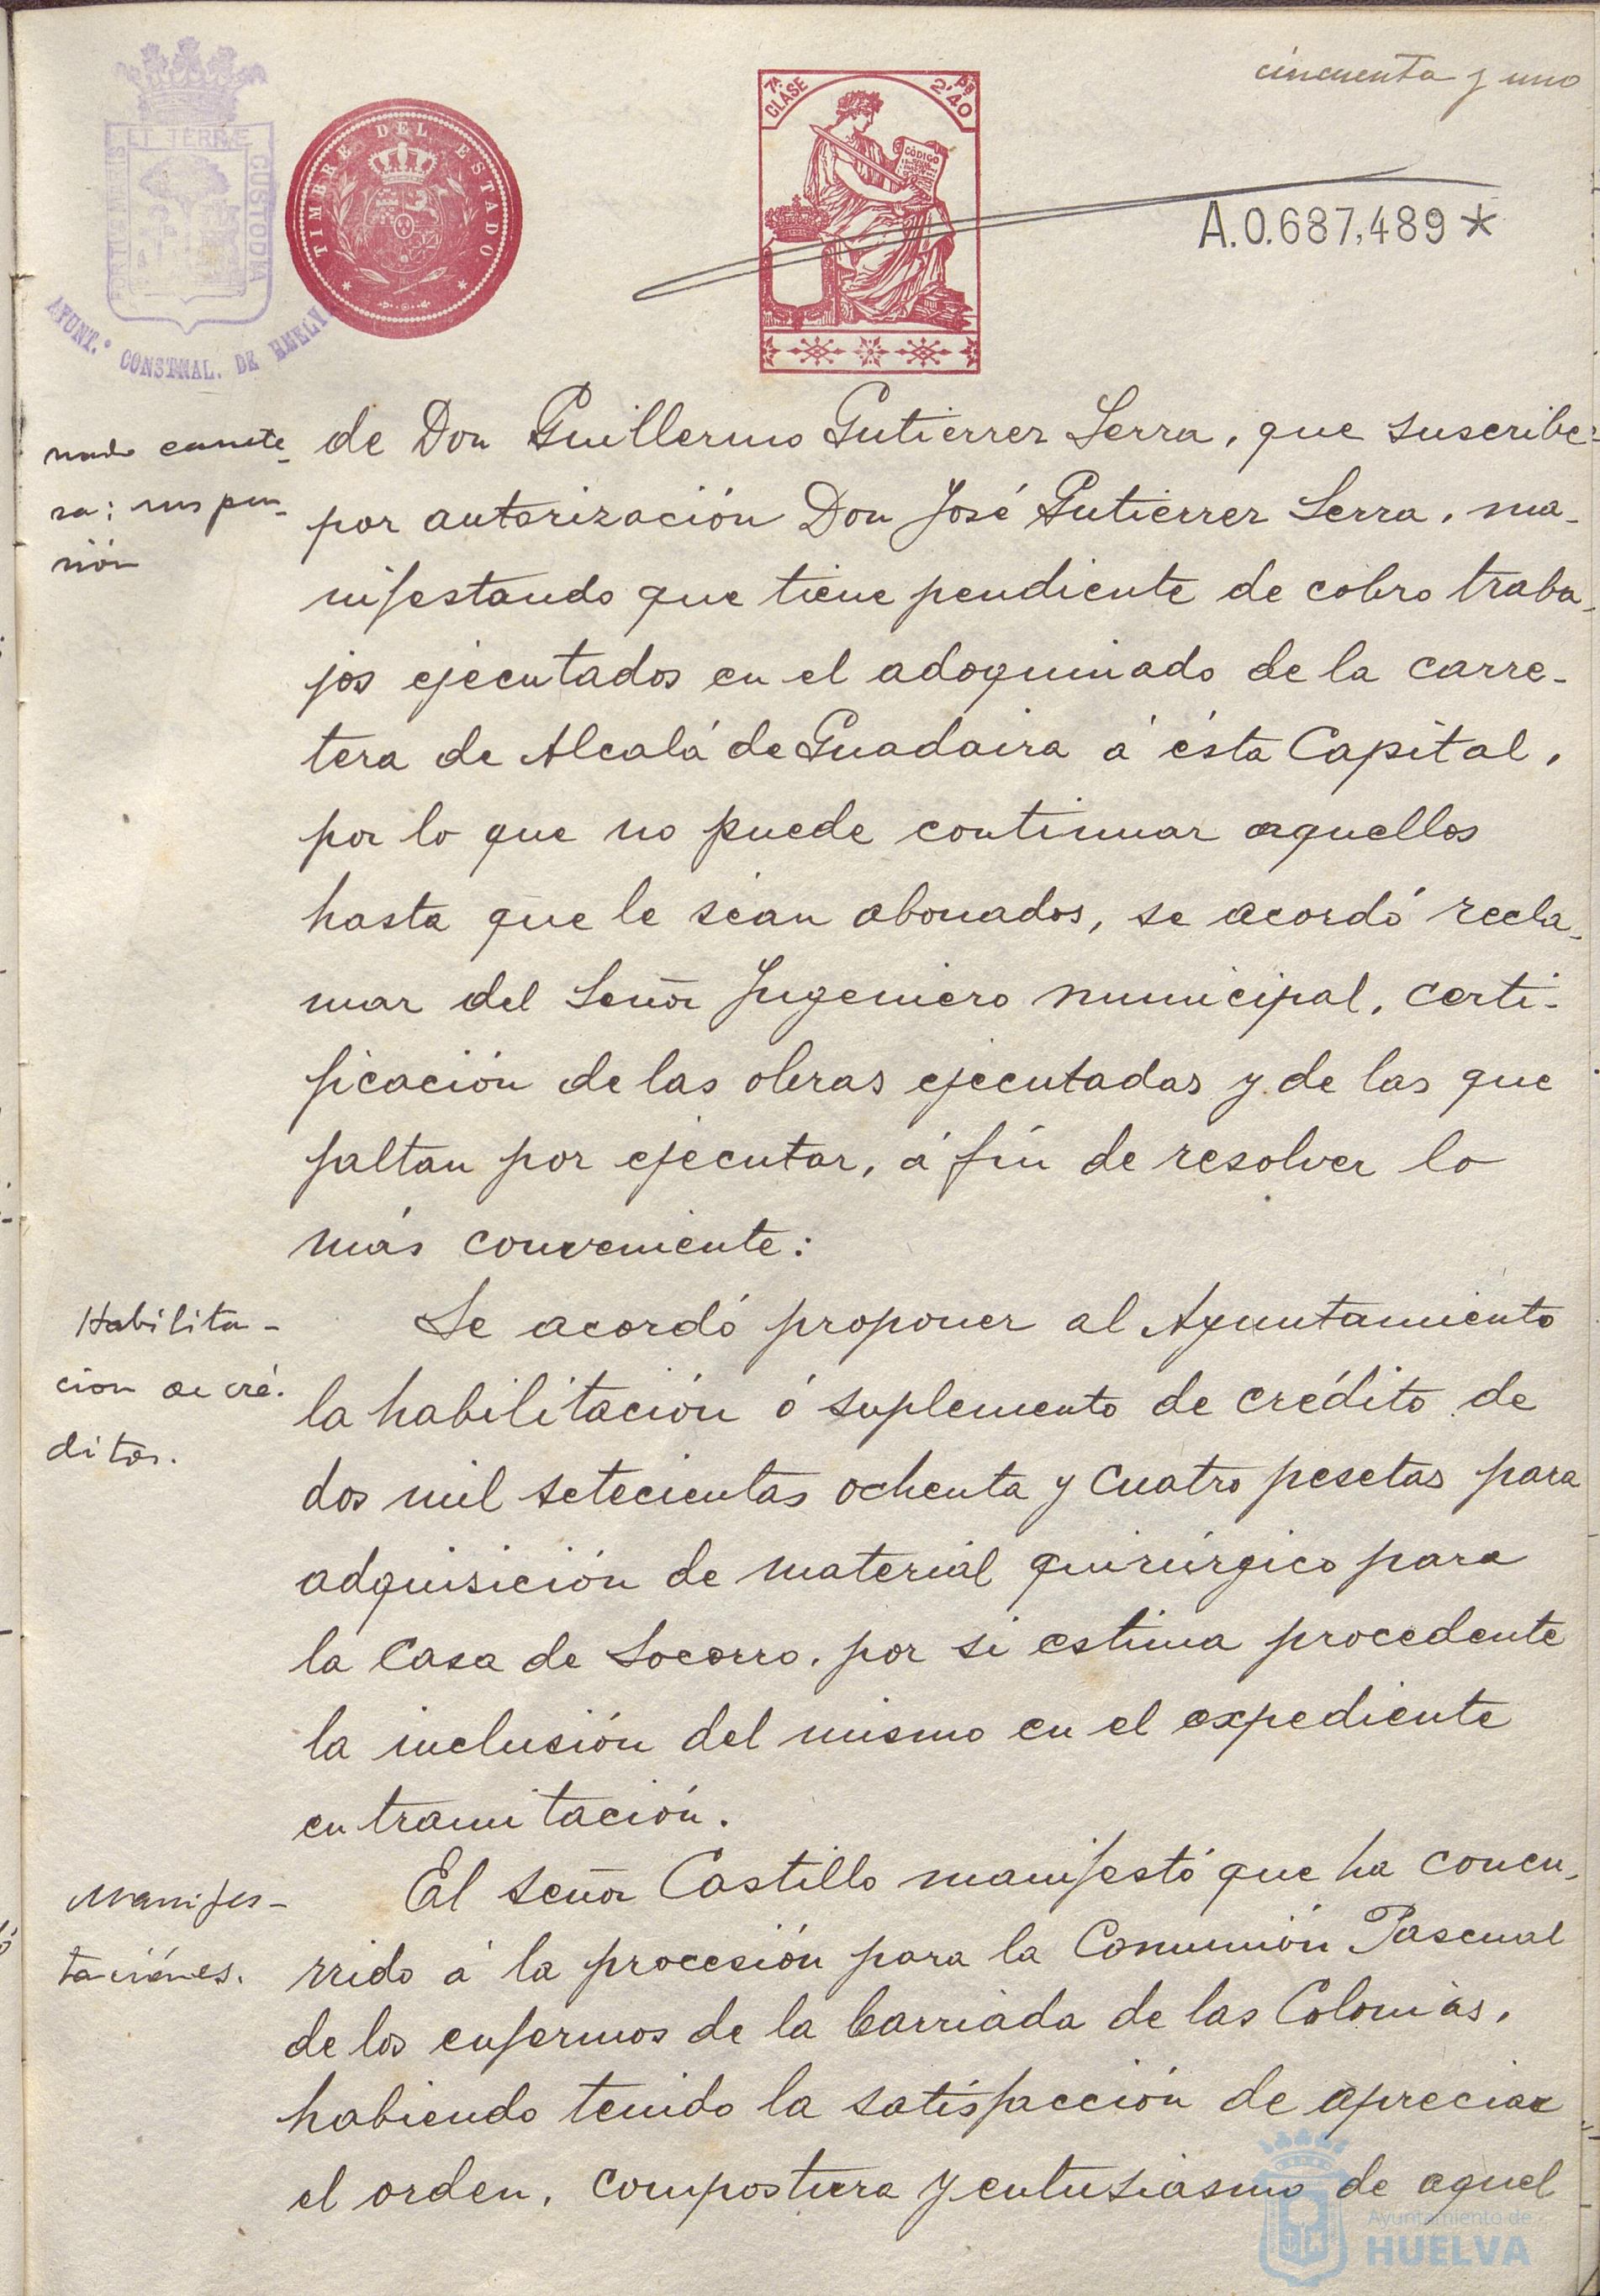 cincuenta y uno
PORTUS MARIS
ET TERRÆ
CUSTODIA
AYUNT.º CONSTNAL. DE HUELVA
TIMBRE DEL ESTADO
7ª CLASE
2'40 Pts
CÓDIGO
A.0.687,489*
nado carrete-
ra: suspen-
sión
de Don Guillermo Gutierrez Serra, que suscribe
por autorización Don José Gutierrez Serra, ma-
nifestando que tiene pendiente de cobro traba-
jos ejecutados en el adoquinado de la carre-
tera de Alcalá de Guadaira á ésta Capital,
por lo que no puede continuar aquellos
hasta que le sean abonados, se acordó recla-
mar del Señor Ingeniero municipal, certi-
ficación de las obras ejecutadas y de las que
faltan por ejecutar, á fin de resolver lo
más conveniente:
Habilita-
cion de cré-
ditos.
Se acordó proponer al Ayuntamiento
la habilitación ó suplemento de crédito de
dos mil setecientas ochenta y cuatro pesetas para
adquisición de material quirúrgico para
la Casa de Socorro, por si estima procedente
la inclusión del mismo en el expediente
en tramitación.
Manifes-
taciones.
El señor Castillo manifestó que ha concu-
rrido á la procesión para la Comunión Pascual
de los enfermos de la barriada de las Colonias,
habiendo tenido la satisfacción de apreciar
el orden, compostura y entusiasmo de aquel
Ayuntamiento de
HUELVA